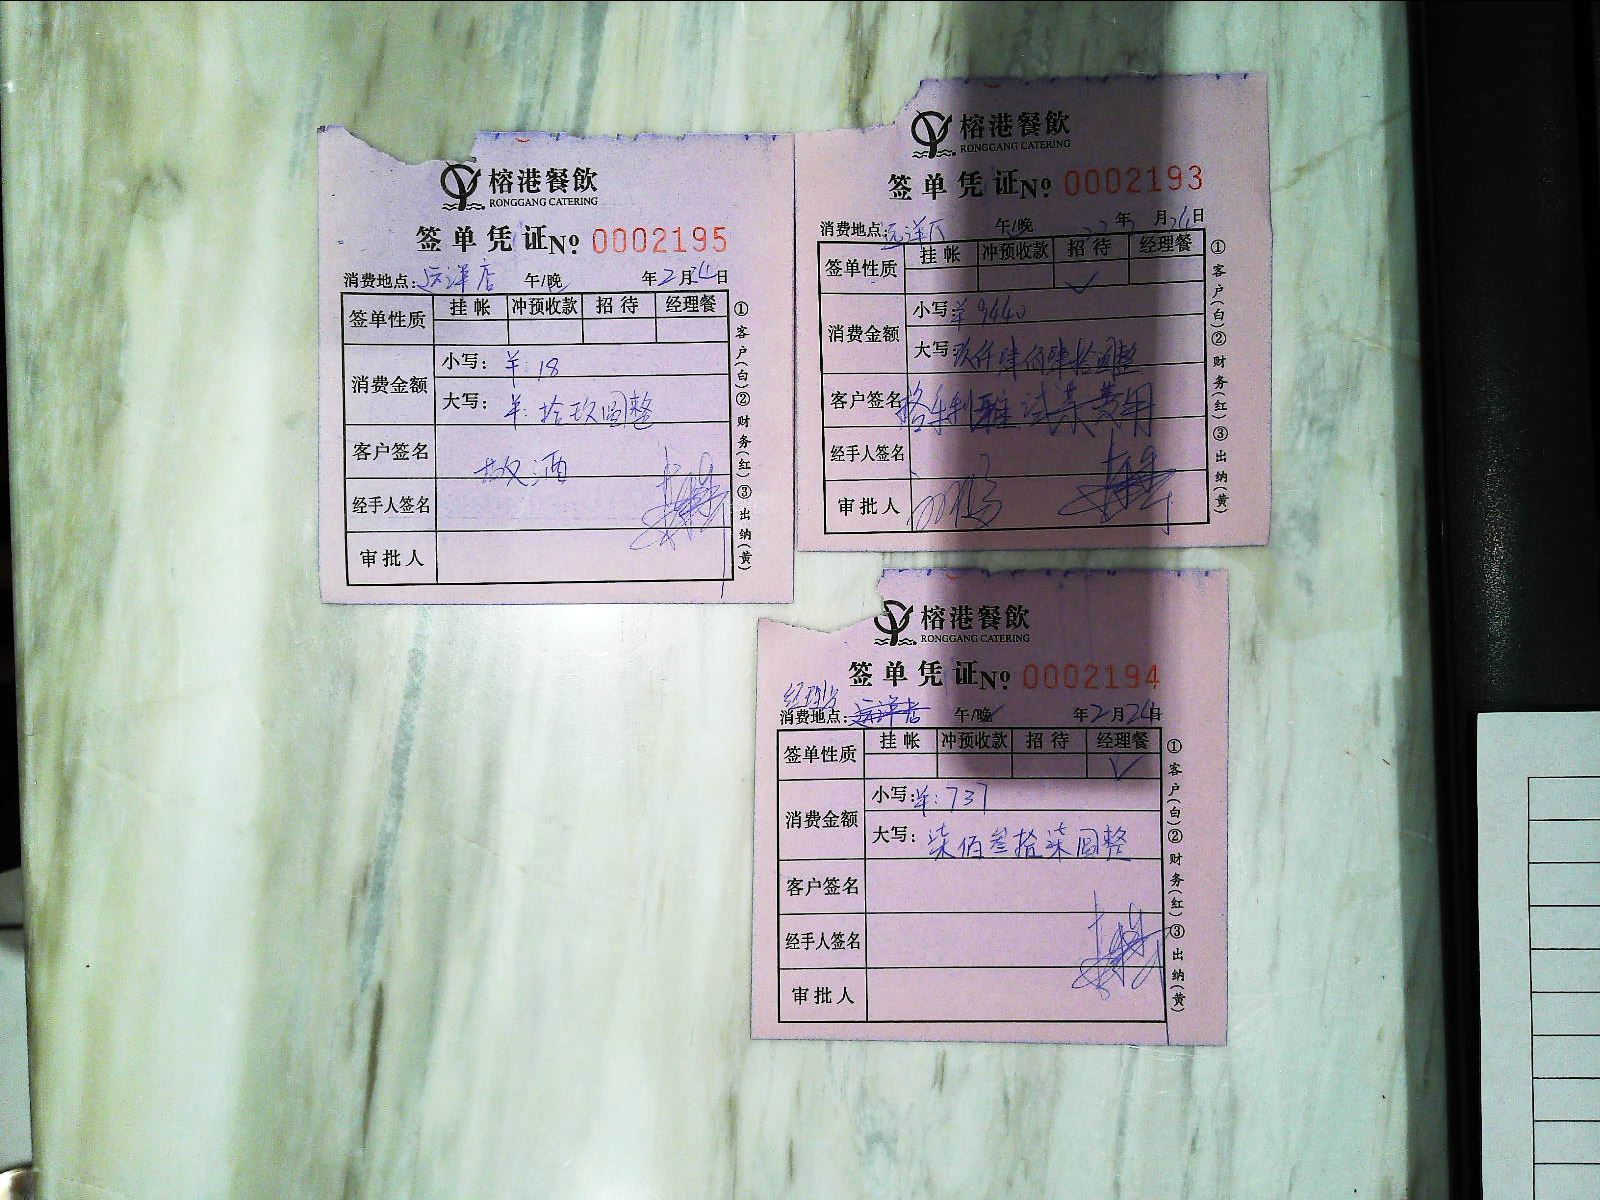 榕港餐飲
RONGGANG CATERING
签单凭证 № 0002195
消费地点: 远洋店 午/晚 年2月26日
签单性质 挂帐 冲预收款 招待 经理餐
消费金额
小写: 羊: 18
大写: 羊: 拾玖圆整
客户签名
散酒
经手人签名
审批人
①客户(白)②财务(红)③出纳(黄)
榕港餐飲
RONGGANG CATERING
签单凭证 № 0002193
消费地点: 远洋 午/晚 年 月26日
签单性质 挂帐 冲预收款 招待 经理餐
✓
消费金额
小写: 羊 9440
大写: 玖仟肆佰肆拾圆整
客户签名 格利雅试菜费用
经手人签名
审批人
①客户(白)②财务(红)③出纳(黄)
榕港餐飲
RONGGANG CATERING
签单凭证 № 0002194
消费地点: 远洋店 午/晚 年2月26日
签单性质 挂帐 冲预收款 招待 经理餐
✓
消费金额
小写: 羊: 737
大写: 柒佰叁拾柒圆整
客户签名
经手人签名
审批人
①客户(白)②财务(红)③出纳(黄)